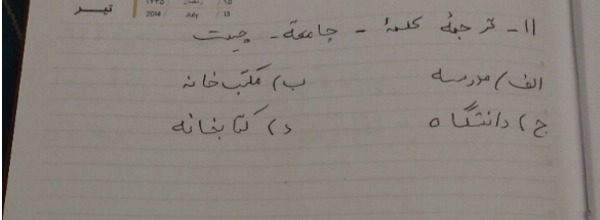 تیر ۱۴۳۵ رمضان ۱۵
2014 July 13
۱۱- ترجمهٔ کلمهٔ - جامعة - چیست
الف) مدرسه ب) مکتب خانه
ج) دانشگاه د) کتابخانه